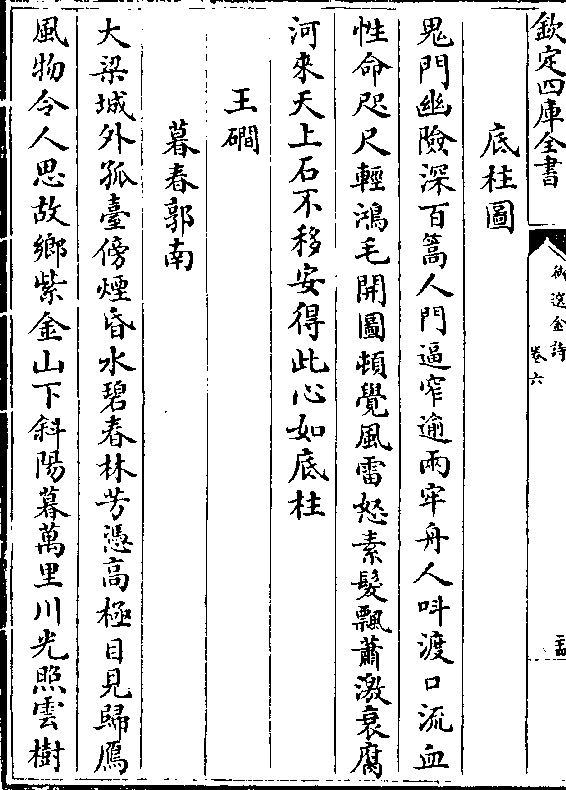 欽定四庫全書
御選金詩
卷六
底柱圖
鬼門幽險深百篙人門逼窄逾兩牢舟人叫渡口流血
性命咫尺輕鴻毛開圖頓覺風雷怒素髮飄蕭激衰腐
河來天上石不移安得此心如底柱
王磵
暮春郭南
大梁城外孤臺傍煙昏水碧春林芳憑高極目見歸鴈
風物令人思故鄉紫金山下斜陽暮萬里川光照雲樹